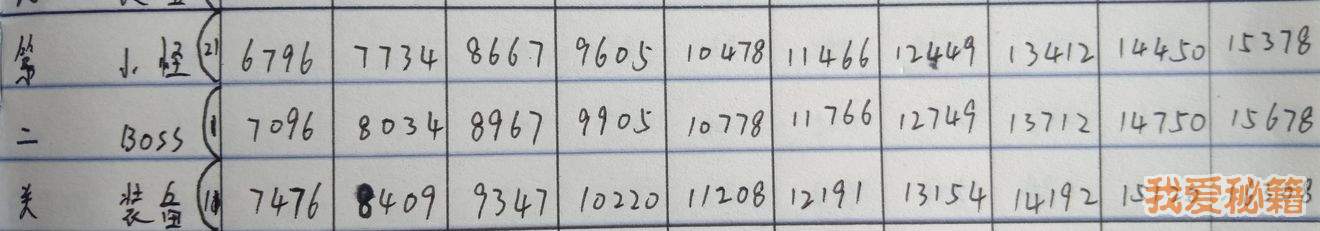 第 小怪(2) 6796 7734 8667 9605 10478 11466 12449 13412 14450 15378
二 BOSS(1) 7096 8034 8967 9905 10778 11766 12749 13712 14750 15678
关 装备 7476 8409 9347 10220 11208 12191 13154 14192
我爱秘籍